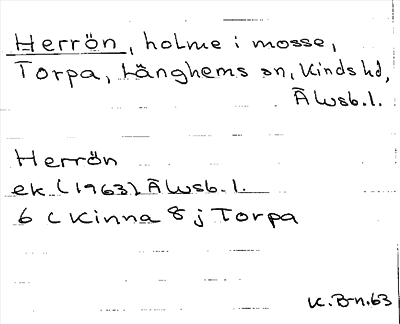 Herrön, holme i mosse,
Torpa, Länghems sn, Kinds hd,
Älvsb.l.
Herrön
ek. (1963) Älvsb.l.
6 C Kinna 8 j Torpa
K.B-n.63